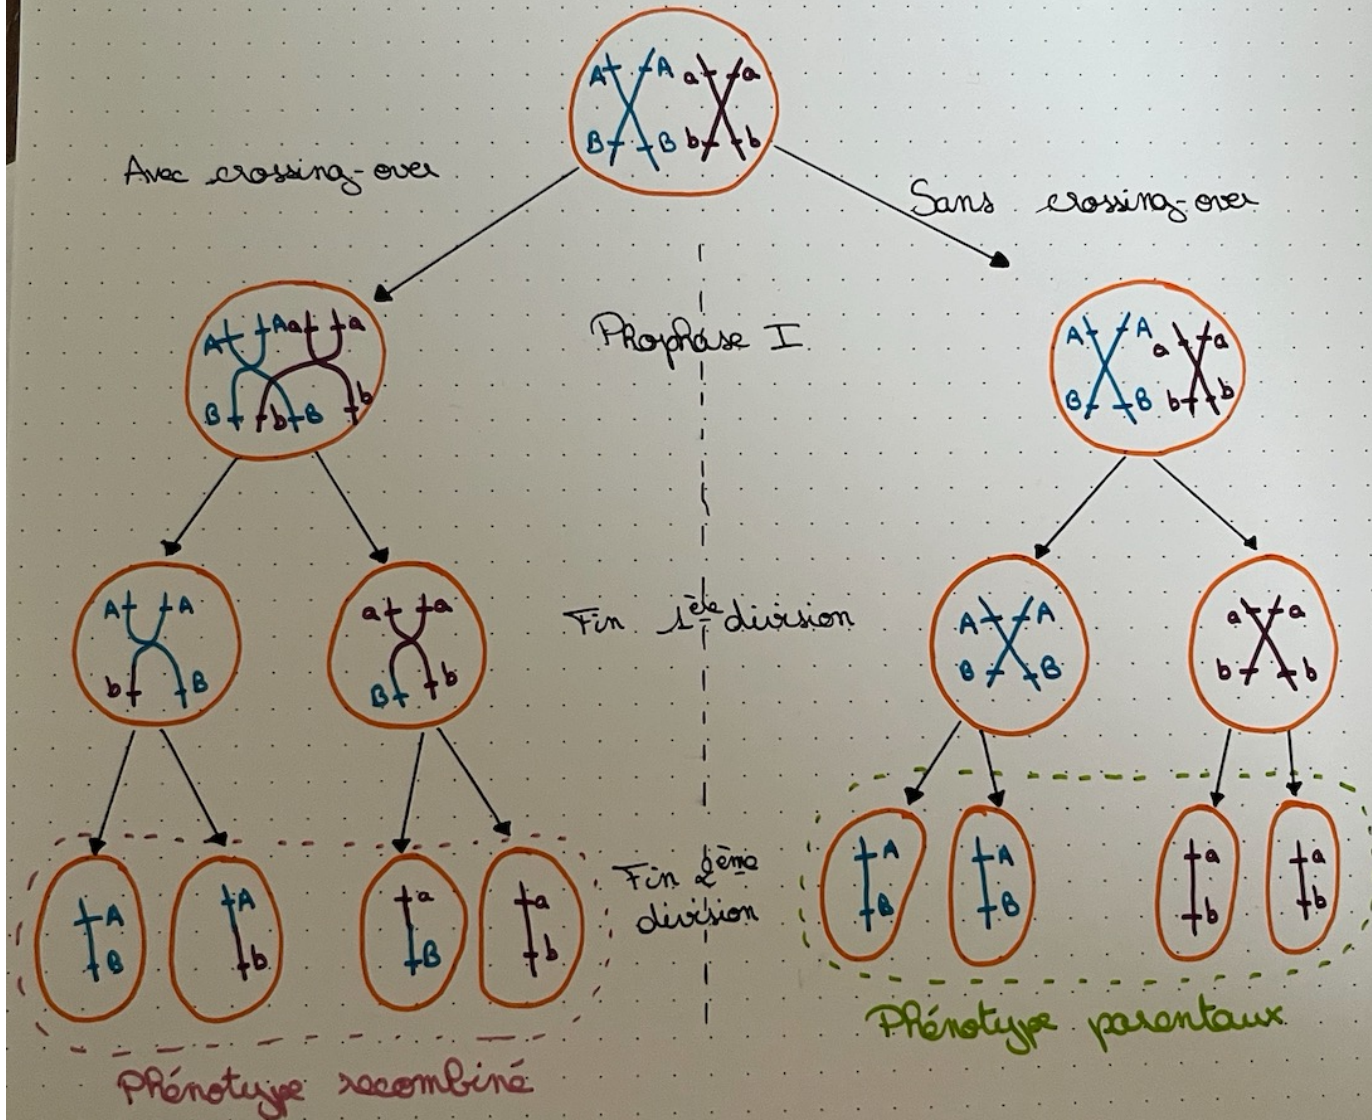 A A a a
B B b b
Avec crossing-over
Sans crossing-over
Prophase I
A A a a
B b B b
A A a a
B B b b
Fin 1ère division
A A
b B
a a
B b
A A
B B
a a
b b
Fin 2ème
division
A
B
A
b
a
B
a
b
A
B
A
B
a
b
a
b
Phénotype recombiné
Phénotype parentaux